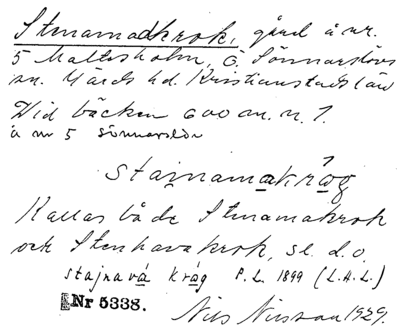 Stenamadkrok, gård å nr.
5 Maltesholm, Ö. Sönnarslövs
sn. Gärds hd. Kristianstads län
Vid bäcken 600 m. n. 1.
å nr 5 Sönnarslöv
stajnamakråg
Kallas både Stenamakrok
och Stenhavakrok, se d.o.
stajnavá kråg P.L. 1899 (L.A.L.)
Nr 5338.
Nils Nilsson 1929.